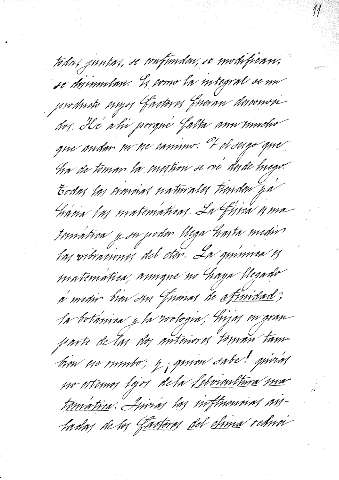 11
todas juntas, se confunden, se modifican,
se disimulan. Es como la integral de un
producto cuyos factores fueran desconoci-
dos. Hé ahí porqué falta aun mucho
que andar en ese camino. Y el sesgo que
ha de tomar la cuestion se vé desde luego.
Todas las ciencias naturales tienden yá
hácia las matemáticas. La física es ma-
temática y en su poder llega hasta medir
las vibraciones del olor. La química es
matemática, aunque no haya llegado
á medir bien sus fuerzas de afinidad;
la botánica y la zoología, hijas en gran
parte de las dos anteriores toman tam-
bien ese rumbo; y, ¡quien sabe! quizás
no estemos lejos de la Selvicultura ma-
temática. Quizás las influencias ais-
ladas de los factores del clima reduci